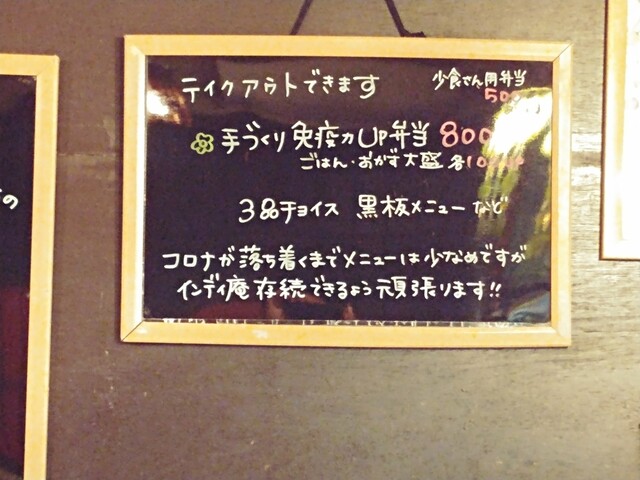 テイクアウトできます
少食さん用弁当
50
手づくり免疫力UP弁当 800
ごはん・おかず大盛 各100
3品チョイス 黒板メニューなど
コロナが落ち着くまでメニューは少なめですが
インディ庵存続できるよう頑張ります!!
の